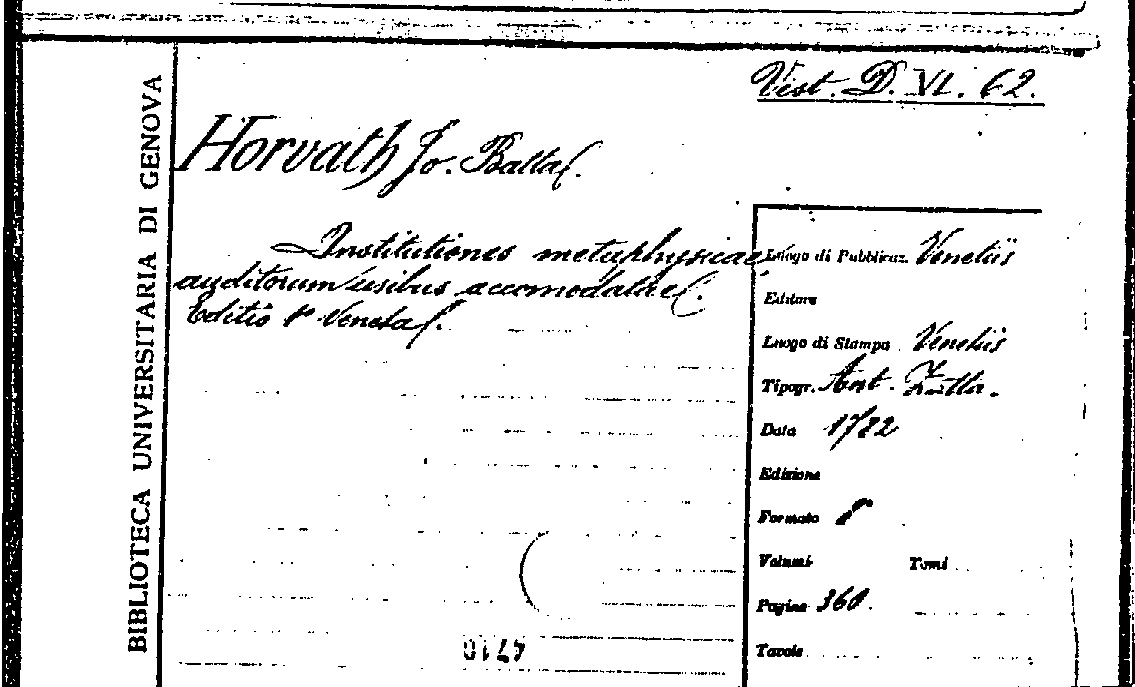 Vist. D. VI. 62.
BIBLIOTECA UNIVERSITARIA DI GENOVA
Horvath Jo. Battaſ.
Institutiones metaphysicae
auditorum usibus accomodatae.
Editio 1ª Veneta.
Luogo di Pubblicaz. Venetiis
Editore
Luogo di Stampa Venetiis
Tipogr. Ant. Zatta.
Data 1782
Edizione
Formato 8°
Volumi Tomi
Pagine 360.
Tavole